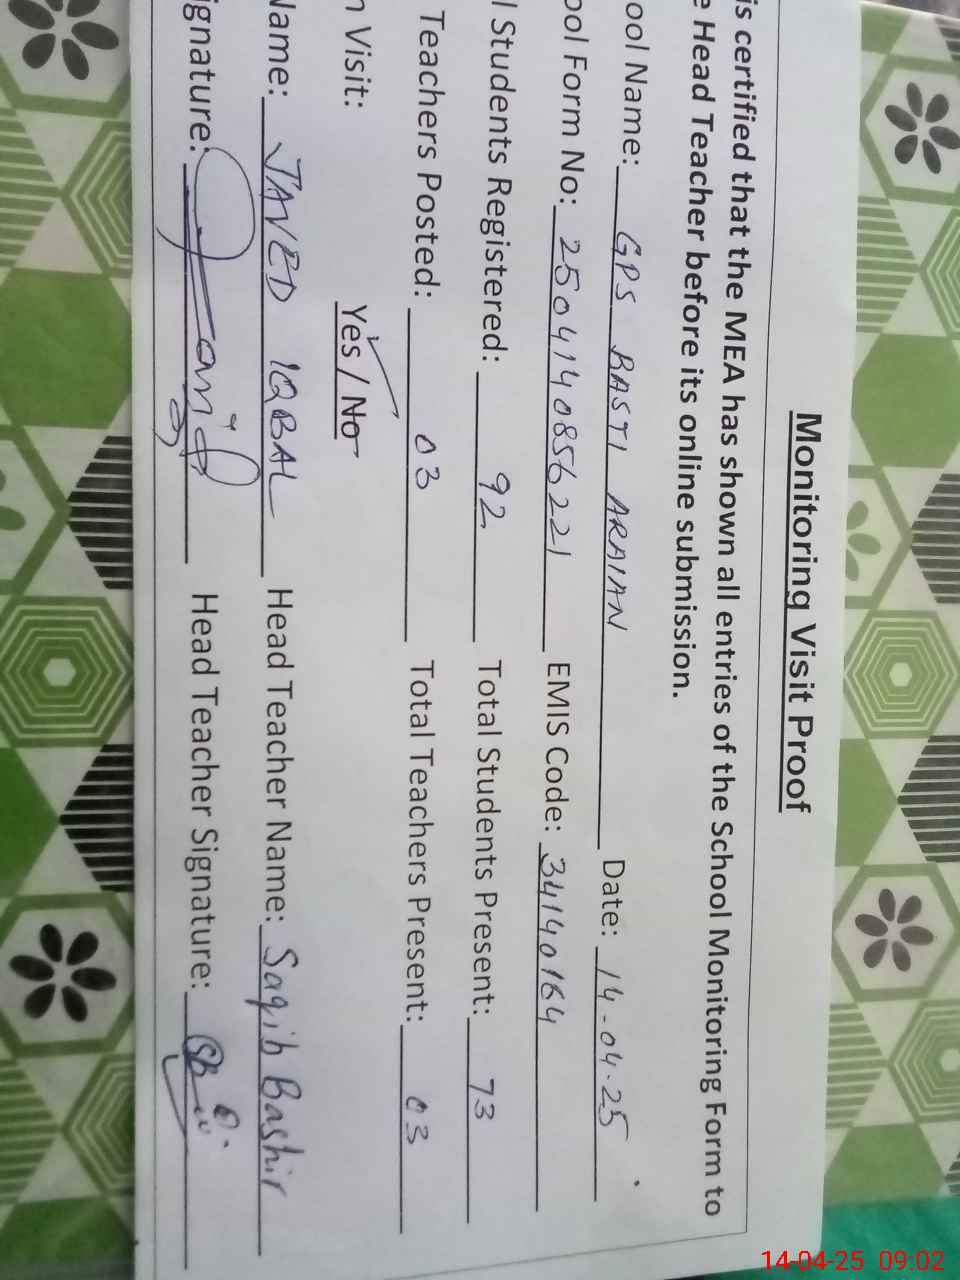 Monitoring Visit Proof
is certified that the MEA has shown all entries of the School Monitoring Form to
e Head Teacher before its online submission.
ool Name: GPS BASTI ARAIAN Date: 14-04-25
ool Form No: 2504140856221 EMIS Code: 34140164
l Students Registered: 92 Total Students Present: 73
Teachers Posted: 03 Total Teachers Present: 03
n Visit: Yes / No
Name: JAVED IQBAL Head Teacher Name: Saqib Bashir
ignature: Head Teacher Signature:
14-04-25 09:02